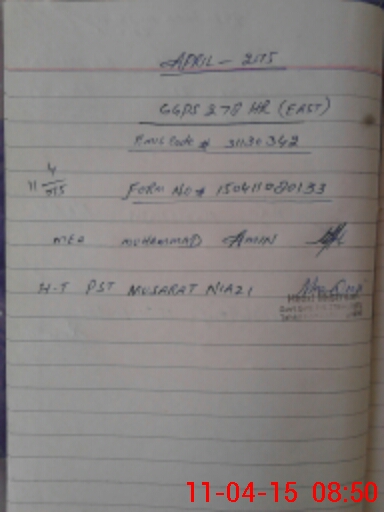 APRIL - 2015
GGPS 278 HR (EAST)
Emis Code # 31130342
11 4/2015 FORM NO # 150411080133
MEA MUHAMMAD AMIN
H-T PST MUSARAT NIAZI
11-04-15 08:50